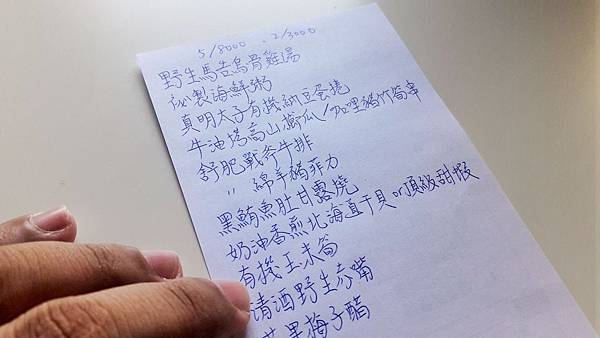 5/8000 、2/3000
野生馬告烏骨雞湯
秘製海鮮粥
真明太子有機納豆蛋捲
牛油塔高山櫛瓜/加哩豬竹筍串
舒肥戰斧牛排
〃 綿羊豬菲力
黑鮪魚肚甘露燒
奶油香煎北海道干貝or頂級甜蝦
有機玉米筍
清酒野生奇嘴
黑梅子醋